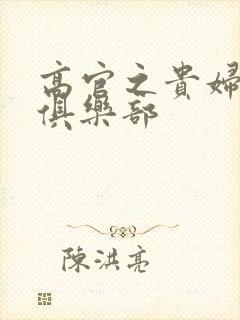 高官之貴婦
俱樂部
陳洪亮